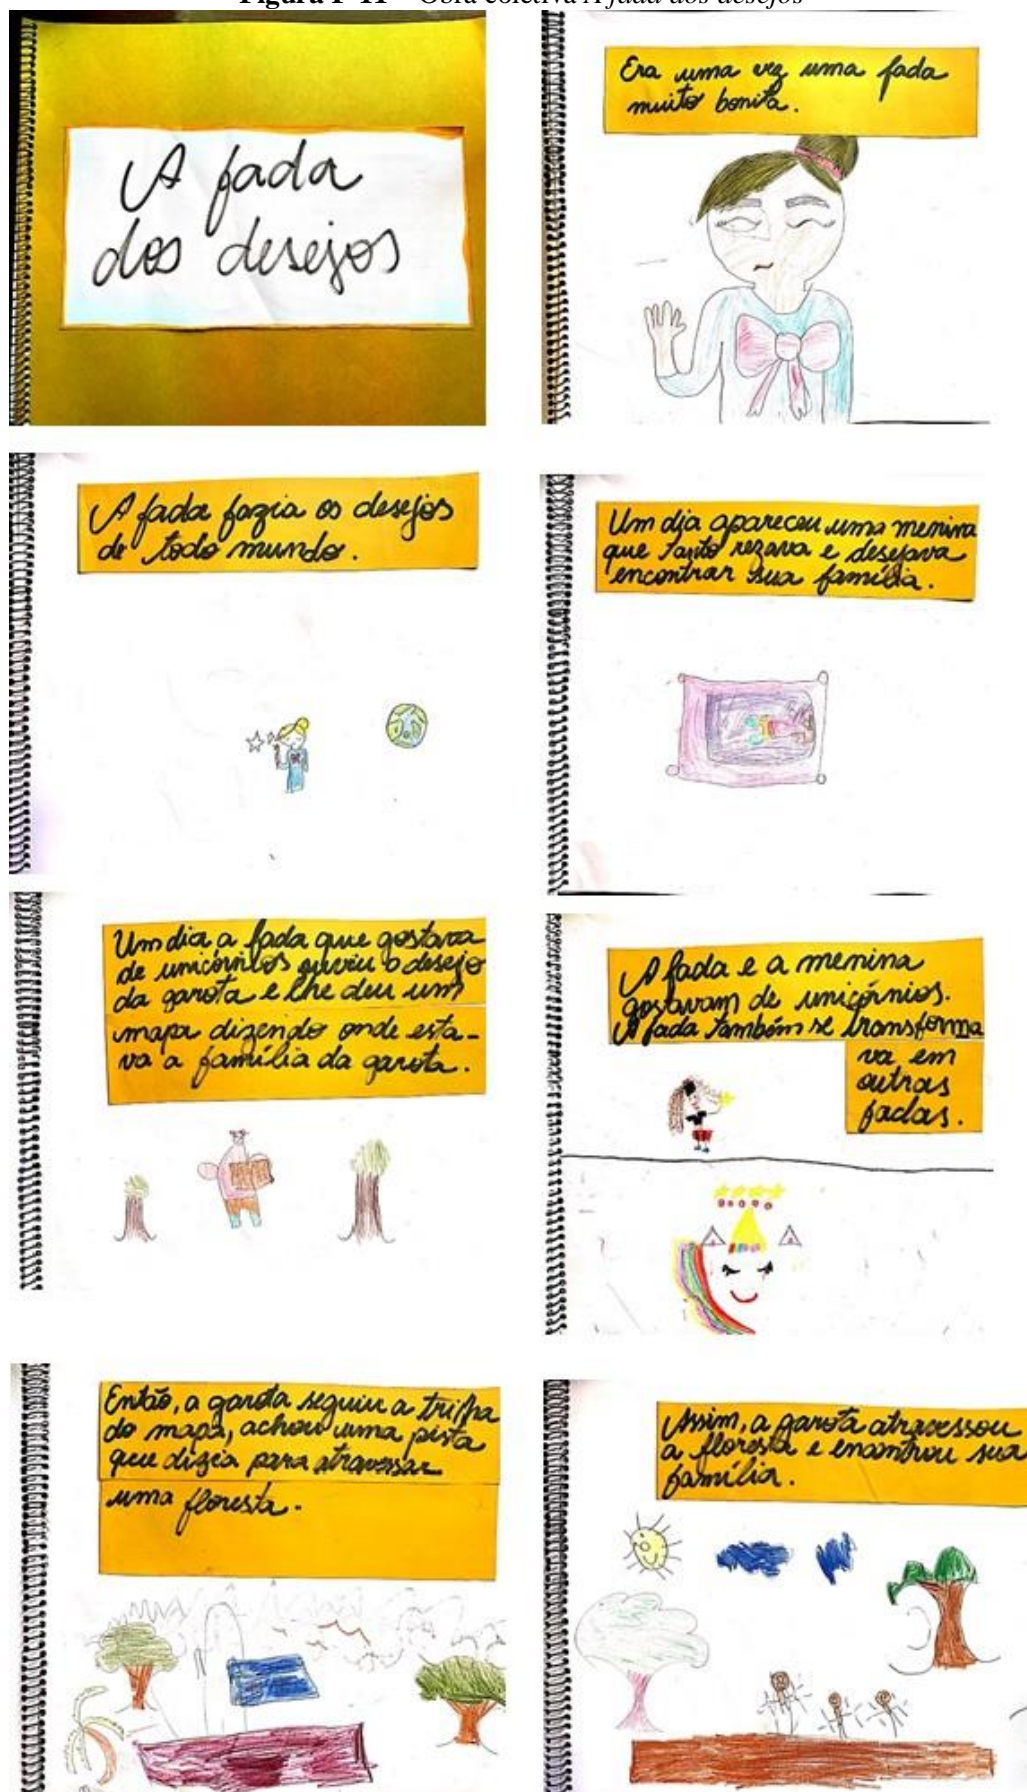 Figura 1-11 – Obra coletiva A fada dos desejos
A fada
dos desejos
Era uma vez uma fada
muito bonita.
A fada fazia os desejos
de todo mundo.
Um dia apareceu uma menina
que tanto rezava e desejava
encontrar sua família.
Um dia a fada que gostava
de unicórnios ouviu o desejo
da garota e lhe deu um
mapa dizendo onde esta-
va a família da garota.
A fada e a menina
gostavam de unicórnios.
A fada também se transforma
va em
outras
fadas.
Então, a garota seguiu a trilha
do mapa, achou uma pista
que dizia para atravessar
uma floresta.
Assim, a garota atravessou
a floresta e encontrou sua
família.